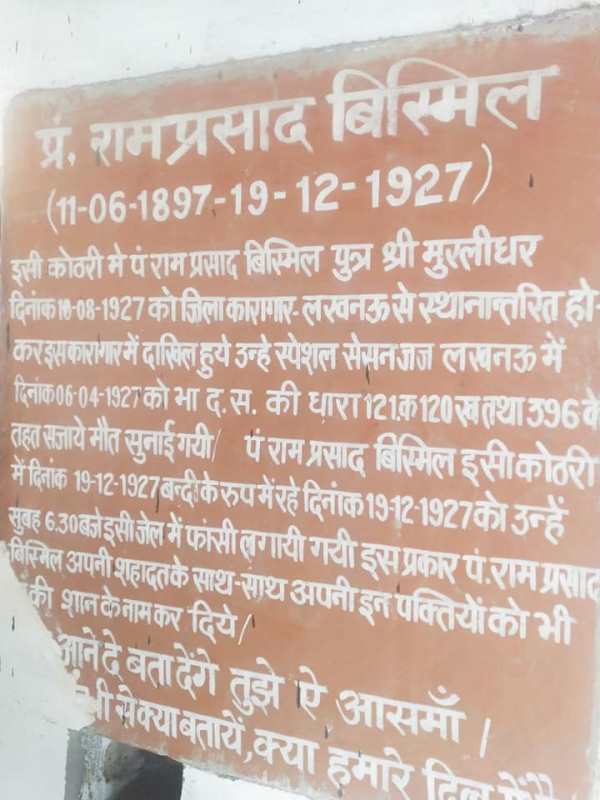 प्रं. रामप्रसाद बिस्मिल
(11-06-1897-19-12-1927)
इसी कोठरी मे पं राम प्रसाद बिस्मिल पुत्र श्री मुरलीधर
दिनांक 10-08-1927 को जिला कारागार- लखनऊ से स्थानान्तरित हो-
कर इस कारागार में दाखिल हुये उन्हे स्पेशल सेसन जज लखनऊ में
दिनांक 06-04-1927 को भा द.स. की धारा 121.क 120 ख तथा 396 के
तहत सजाये मौत सुनाई गयी/ पं राम प्रसाद बिस्मिल इसी कोठरी
में दिनांक 19-12-1927 बन्दी के रुप में रहे दिनांक 19-12-1927 को उन्हें
सुबह 6.30 बजे इसी जेल में फांसी लगायी गयी इस प्रकार पं. राम प्रसाद
बिस्मिल अपनी शहादत के साथ-साथ अपनी इन पक्तियों को भी
की शान के नाम कर दिये/
आने दे बता देंगे तुझे ऐ आसमाँ।
से क्या बतायें, क्या हमारे दिल में है